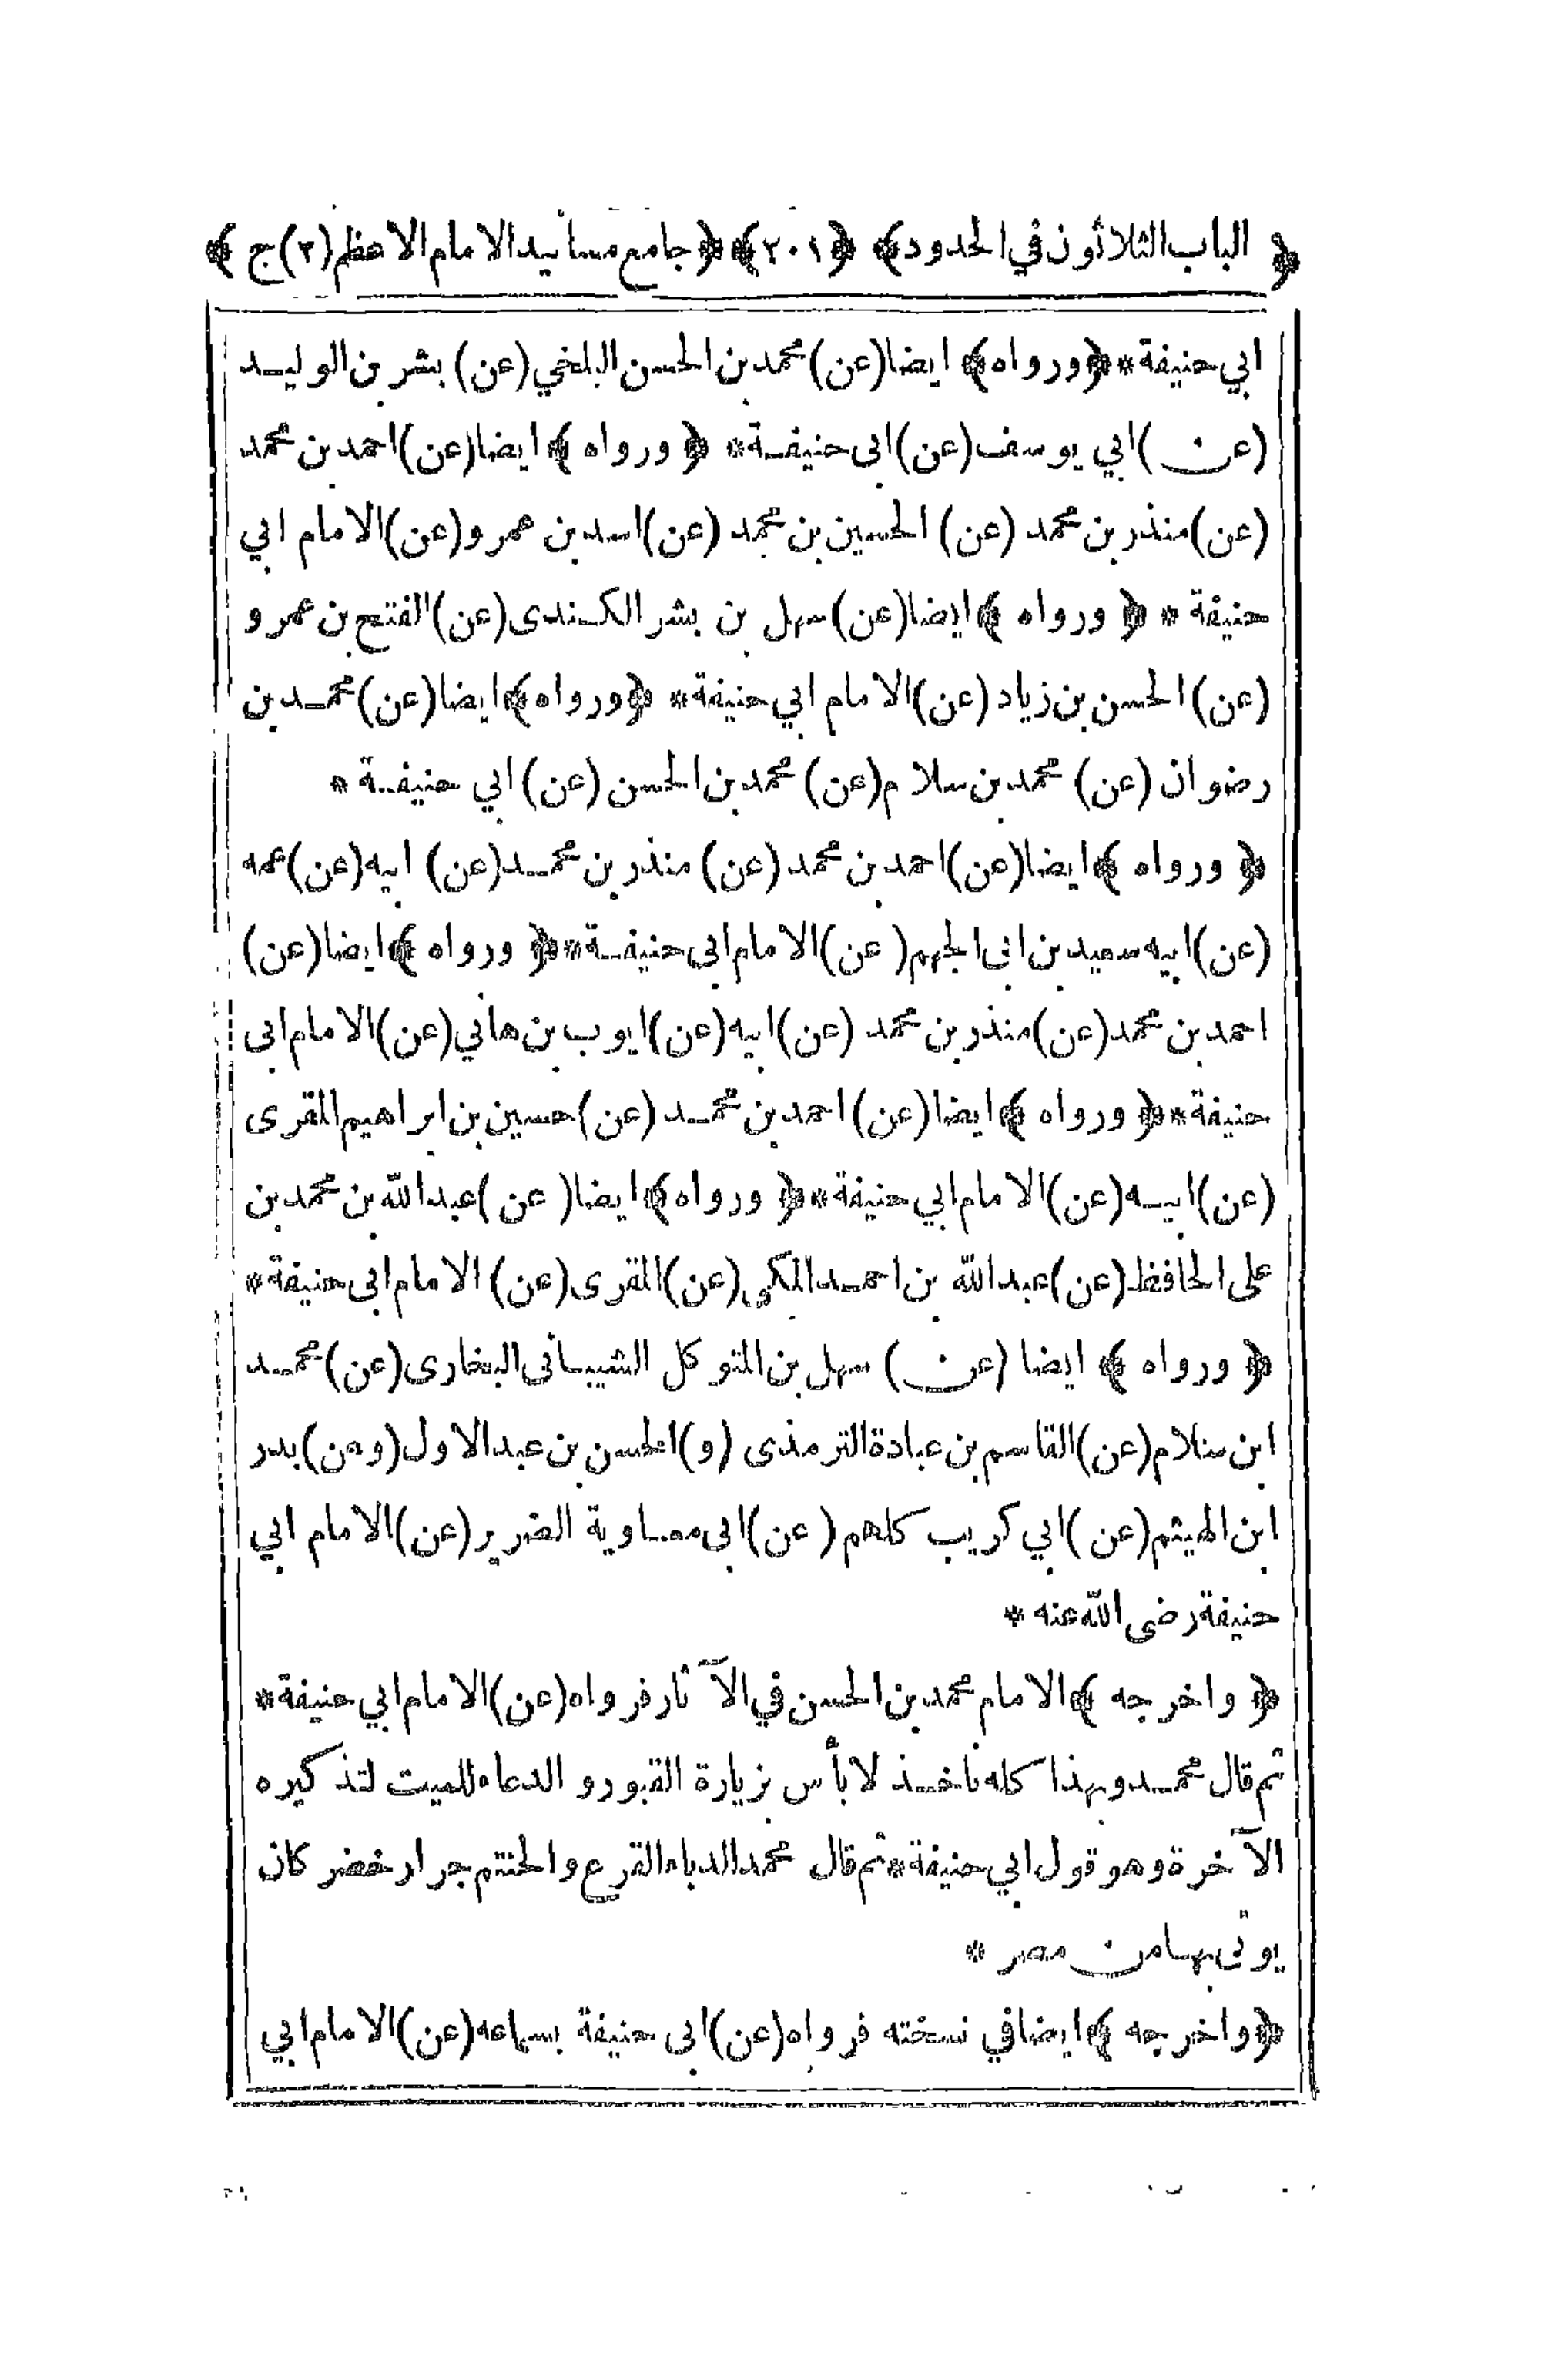 ﴿ الباب الثلاثون في الحدود ﴾ ﴿٢٠١﴾ ﴿ جامع مسانيد الامام الاعظم (٢) ج ﴾
ابي حنيفة * ﴿ورواه﴾ ايضا (عن) محمد بن الحسن البلخي (عن) بشر بن الوليد
(عن) ابي يوسف (عن) ابى حنيفة * ﴿ ورواه ﴾ ايضا (عن) احمد بن محمد
(عن) منذر بن محمد (عن) الحسين بن محمد (عن) اسد بن عمرو (عن) الامام ابي
حنيفة * ﴿ ورواه ﴾ ايضا (عن) سهل بن بشر الكندى (عن) الفتح بن عمرو
(عن) الحسن بن زياد (عن) الامام ابي حنيفة * ﴿ورواه﴾ ايضا (عن) محمد بن
رضوان (عن) محمد بن سلام (عن) محمد بن الحسن (عن) ابي حنيفة *
﴿ ورواه ﴾ ايضا (عن) احمد بن محمد (عن) منذر بن محمد (عن) ابيه (عن) عمه
(عن) ابيه سعيد بن ابى الجهم (عن) الامام ابى حنيفة * ﴿ ورواه ﴾ ايضا (عن)
احمد بن محمد (عن) منذر بن محمد (عن) ابيه (عن) ايوب بن هاني (عن) الامام ابى
حنيفة * ﴿ ورواه ﴾ ايضا (عن) احمد بن محمد (عن) حسين بن ابراهيم المقرى
(عن) ابيه (عن) الامام ابي حنيفة * ﴿ ورواه ﴾ ايضا (عن) عبد الله بن محمد بن
على الحافظ (عن) عبد الله بن احمد المكي (عن) المقرى (عن) الامام ابى حنيفة *
﴿ ورواه ﴾ ايضا (عن) سهل بن المتوكل الشيبانى البخارى (عن) محمد
ابن سلام (عن) القاسم بن عبادة الترمذى (و) الحسن بن عبد الاول (وعن) بدر
ابن الهيثم (عن) ابي كريب كلهم (عن) ابى معاوية الضرير (عن) الامام ابي
حنيفة رضى الله عنه *
﴿ واخرجه ﴾ الامام محمد بن الحسن في الآثار فرواه (عن) الامام ابي حنيفة *
ثم قال محمد وبهذا كله ناخذ لا بأس بزيارة القبور و الدعاء للميت لتذكيره
الآخرة وهو قول ابي حنيفة * ثم قال محمد الدباء القرع والحنتم جرار خضر كان
يوتى بها من مصر *
﴿واخرجه ﴾ ايضا في نسخته فرواه (عن) ابى حنيفة بسماعه (عن) الامام ابي